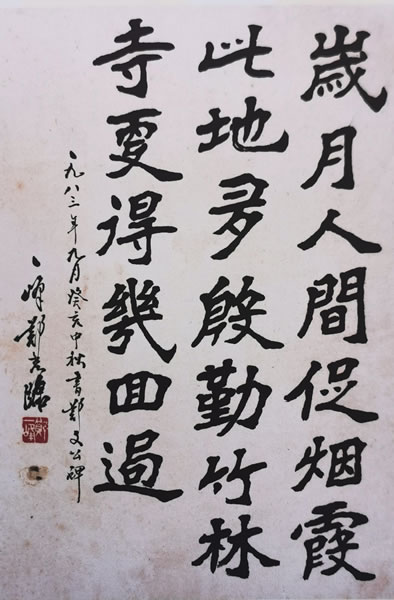 歲月人間促烟霞
此地多殷勤竹林
寺更得幾回過
一九八三年九月癸亥中秋書鄭文公碑
一峰鄭